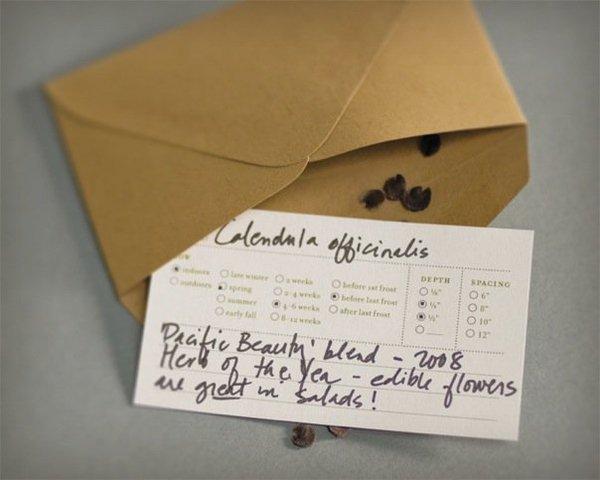 Calendula officinalis
indoors late winter 2 weeks before 1st frost DEPTH SPACING
outdoors spring 2-4 weeks before last frost ⅛" 6"
summer 4-6 weeks after last frost ¼" 8"
early fall 8-12 weeks ½" 10"
12"
'Pacific Beauty' blend - 2008
Herb of the Yea - edible flowers
are great in salads!